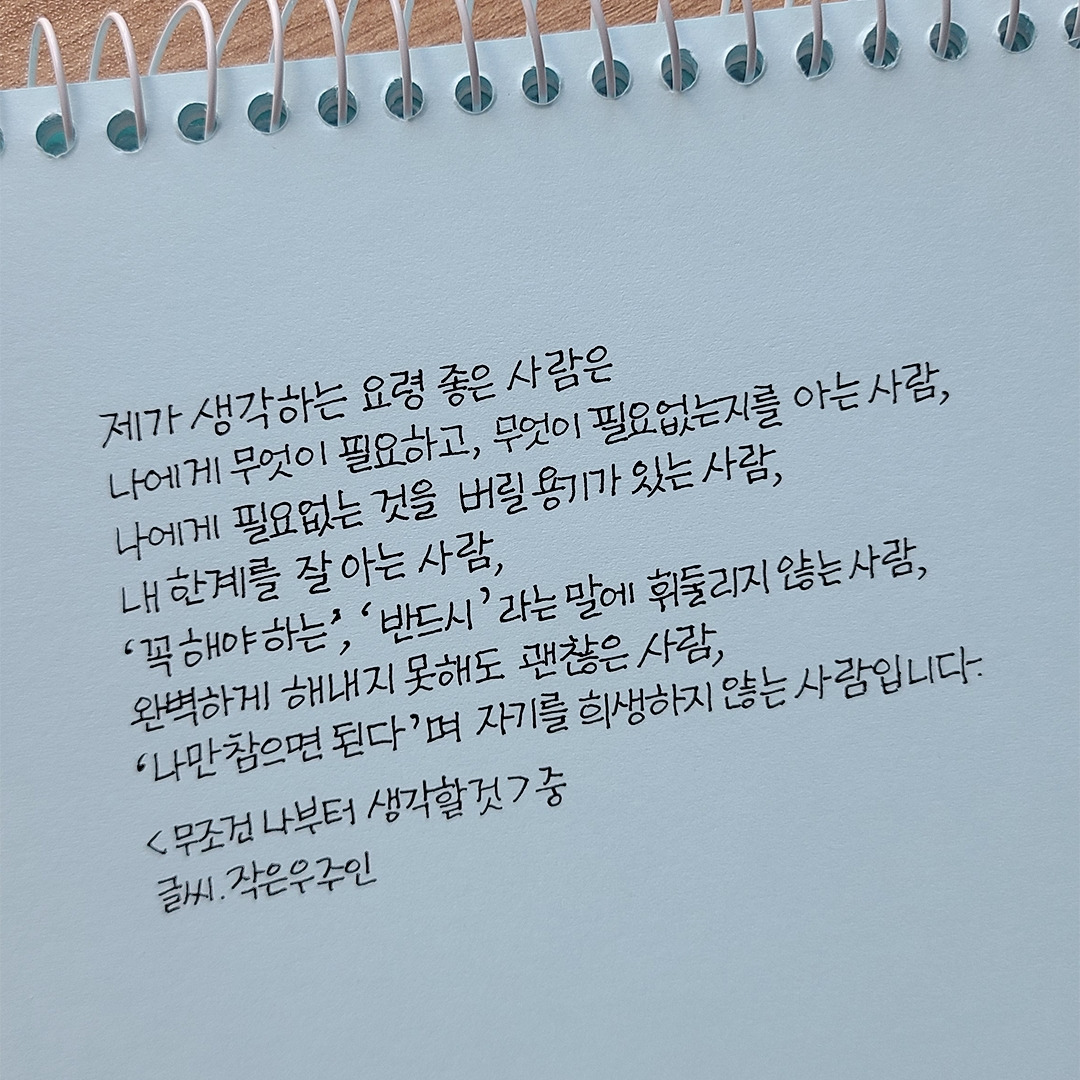 제가 생각하는 요령 좋은 사람은
나에게 무엇이 필요하고, 무엇이 필요없는지를 아는 사람,
나에게 필요없는 것을 버릴 용기가 있는 사람,
내 한계를 잘 아는 사람,
‘꼭 해야 하는’, ‘반드시’ 라는 말에 휘둘리지 않는 사람,
완벽하게 해내지 못해도 괜찮은 사람,
‘나만 참으면 된다’며 자기를 희생하지 않는 사람입니다.
<무조건 나부터 생각할것> 중
글씨. 작은우주인